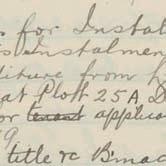 s for Instal
s Instalmen
diture from h
at Plott 25A, D
or tenant applica
9
title re B'ma